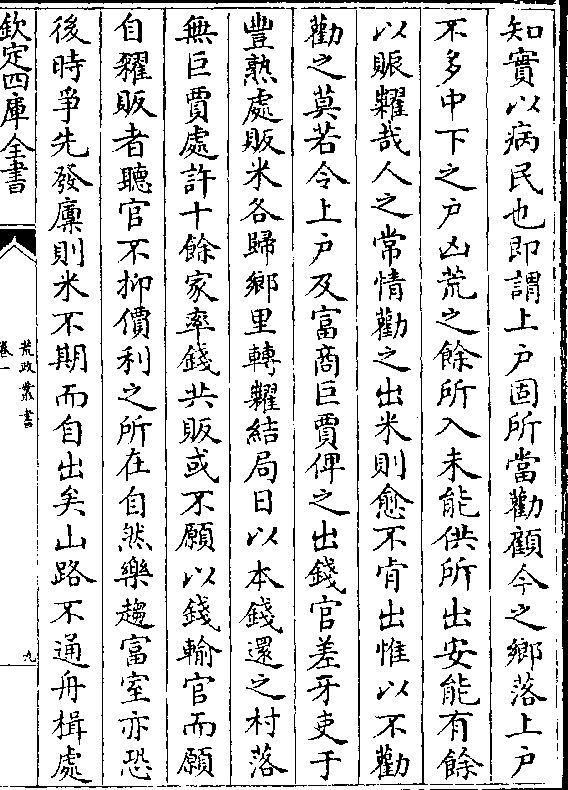 知實以病民也即謂上户固所當勸顧今之鄉落上户
不多中下之户凶荒之餘所入未能供所出安能有餘
以賑糶哉人之常情勸之出米則愈不肯出惟以不勸
勸之莫若令上户及富商巨賈俾之出錢官差牙吏于
豐熟處販米各歸鄉里轉糶結局日以本錢還之村落
無巨賈處許十餘家率錢共販或不願以錢輸官而願
自糴販者聽官不抑價利之所在自然樂趨富室亦恐
後時爭先發廪則米不期而自出矣山路不通舟楫處
欽定四庫全書
荒政叢書
卷一
九